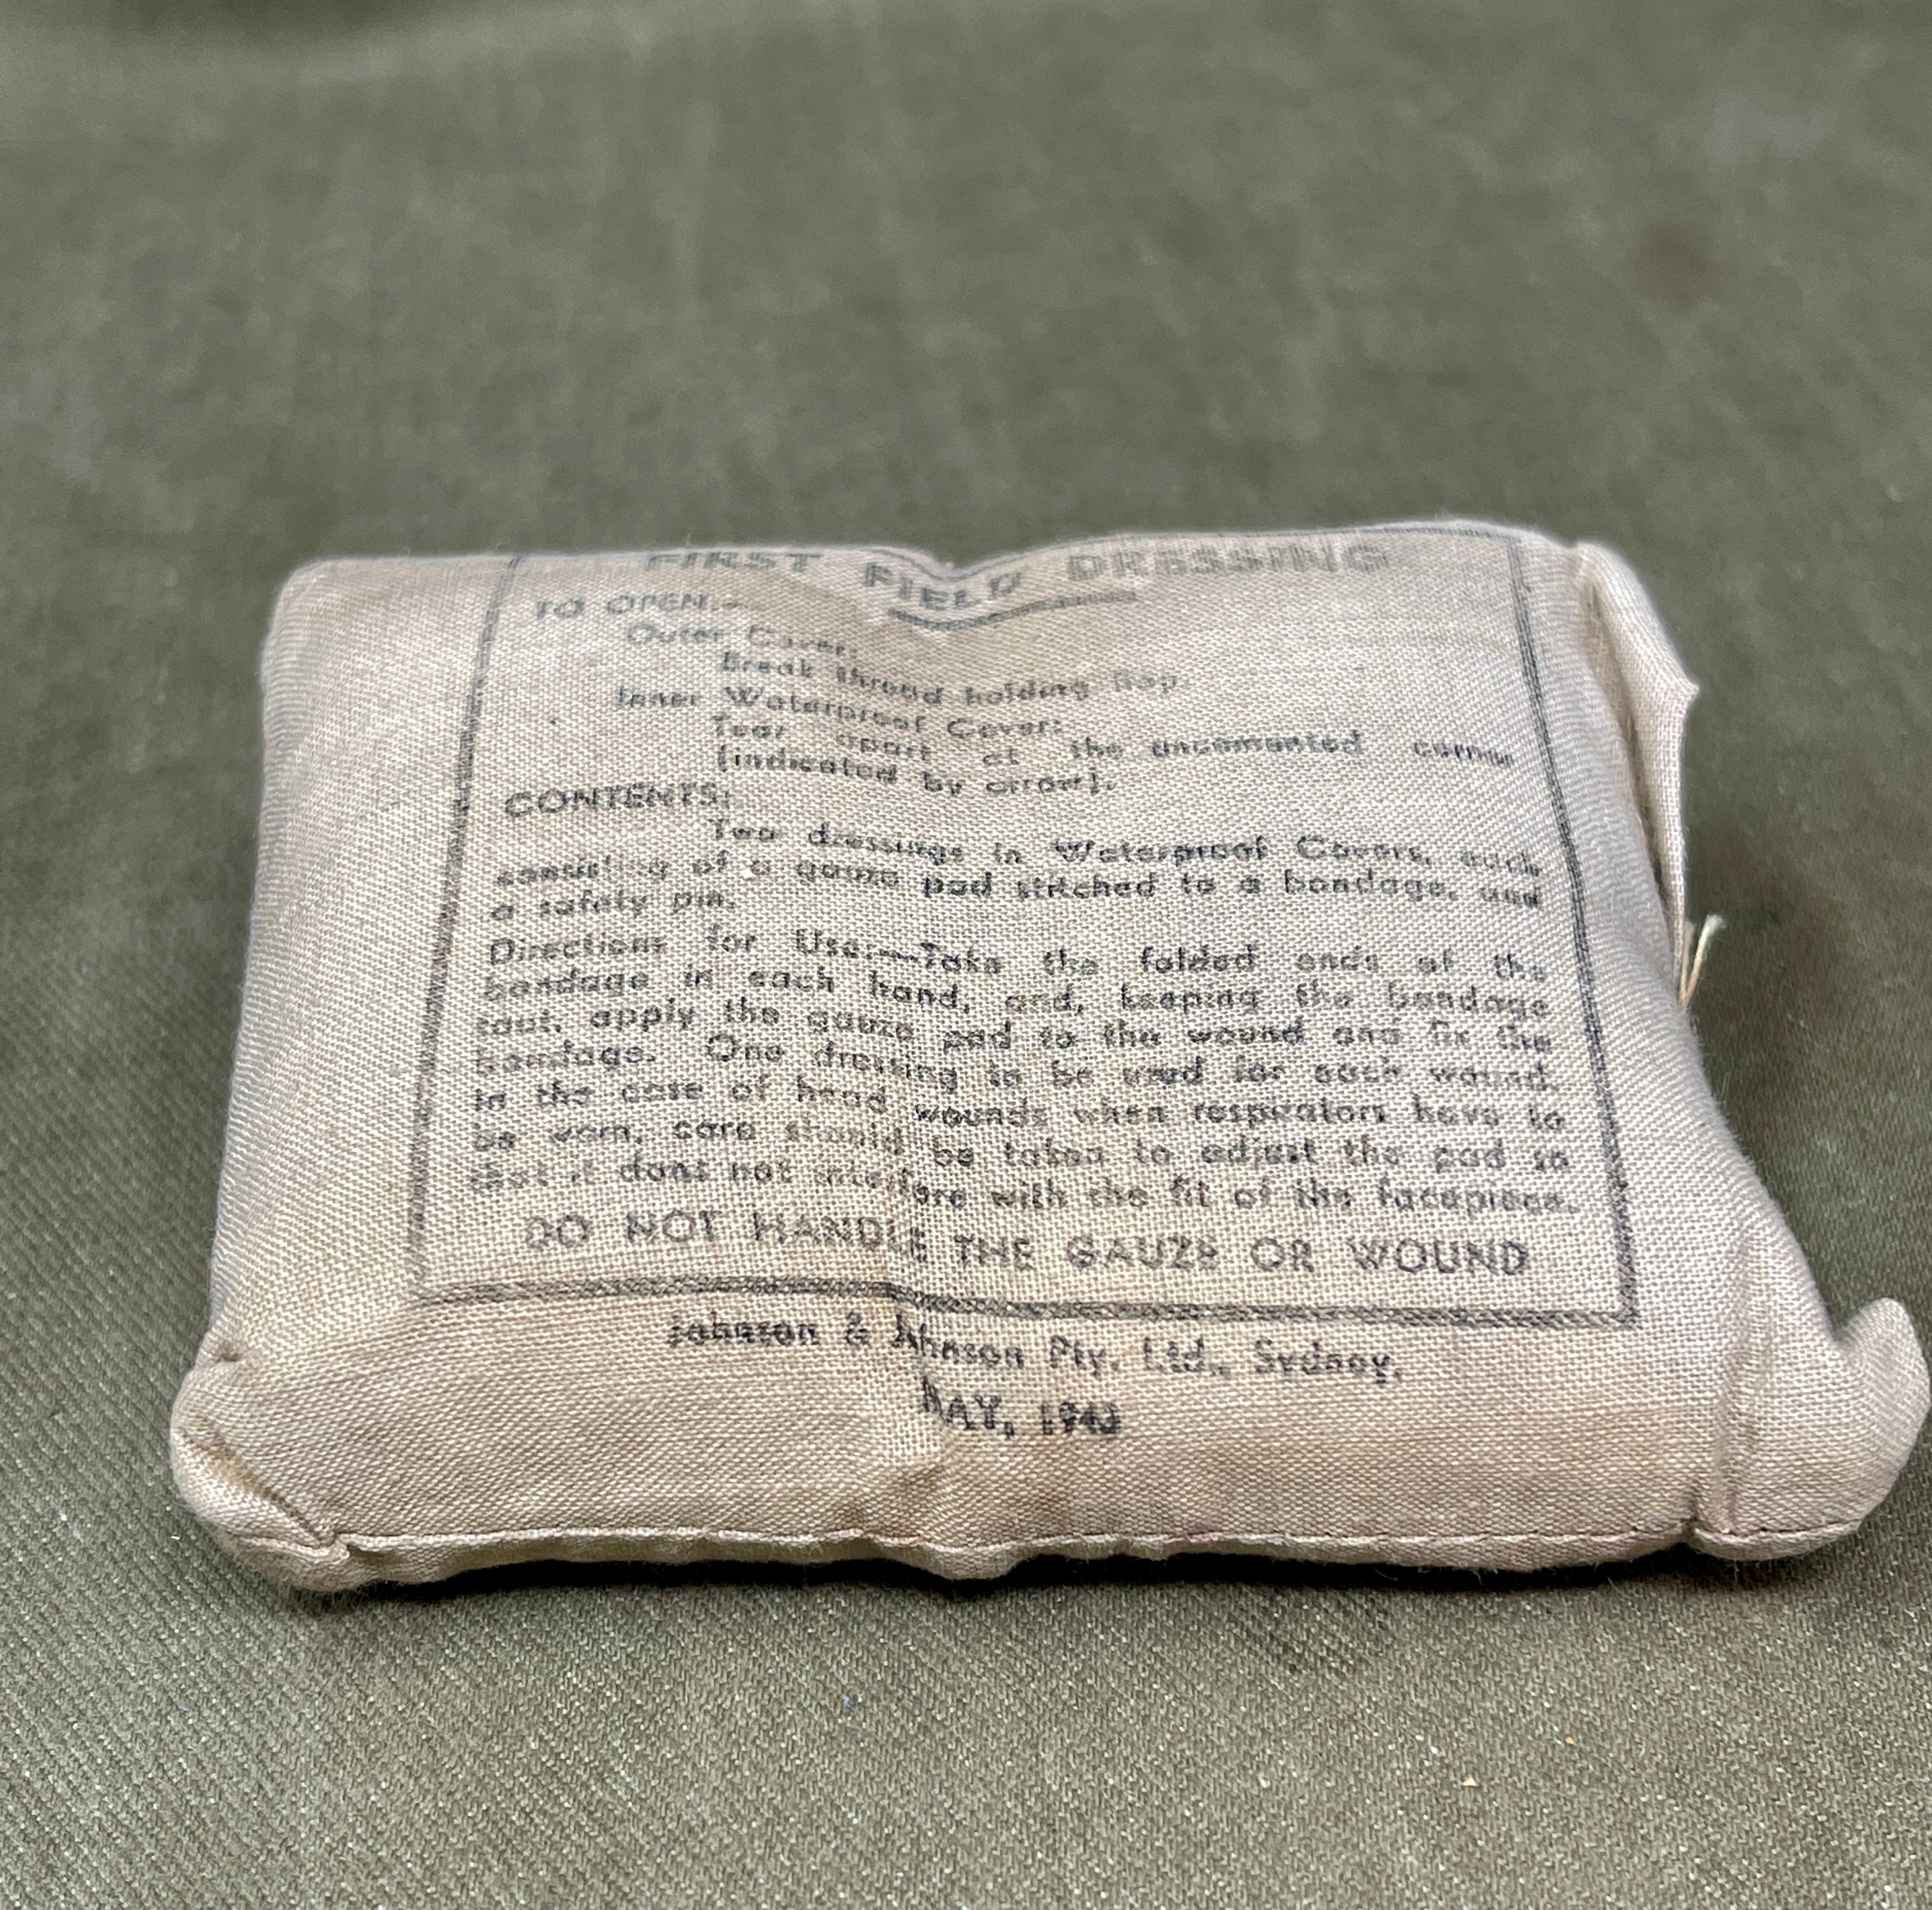 FIRST FIELD DRESSING
TO OPEN:—
Outer Cover:
Break thread holding flap.
Inner Waterproof Cover:
Tear apart at the uncemented corner
(indicated by arrow).
CONTENTS:
Two dressings in Waterproof Covers, each
consisting of a gauze pad stitched to a bandage, and
a safety pin.
Directions for Use:—Take the folded ends of the
bandage in each hand, and, keeping the bandage
taut, apply the gauze pad to the wound and fix the
bandage. One dressing to be used for each wound.
In the case of head wounds when respirators have to
be worn, care should be taken to adjust the pad so
that it does not interfere with the fit of the facepiece.
DO NOT HANDLE THE GAUZE OR WOUND
Johnson & Johnson Pty. Ltd., Sydney.
MAY, 1943